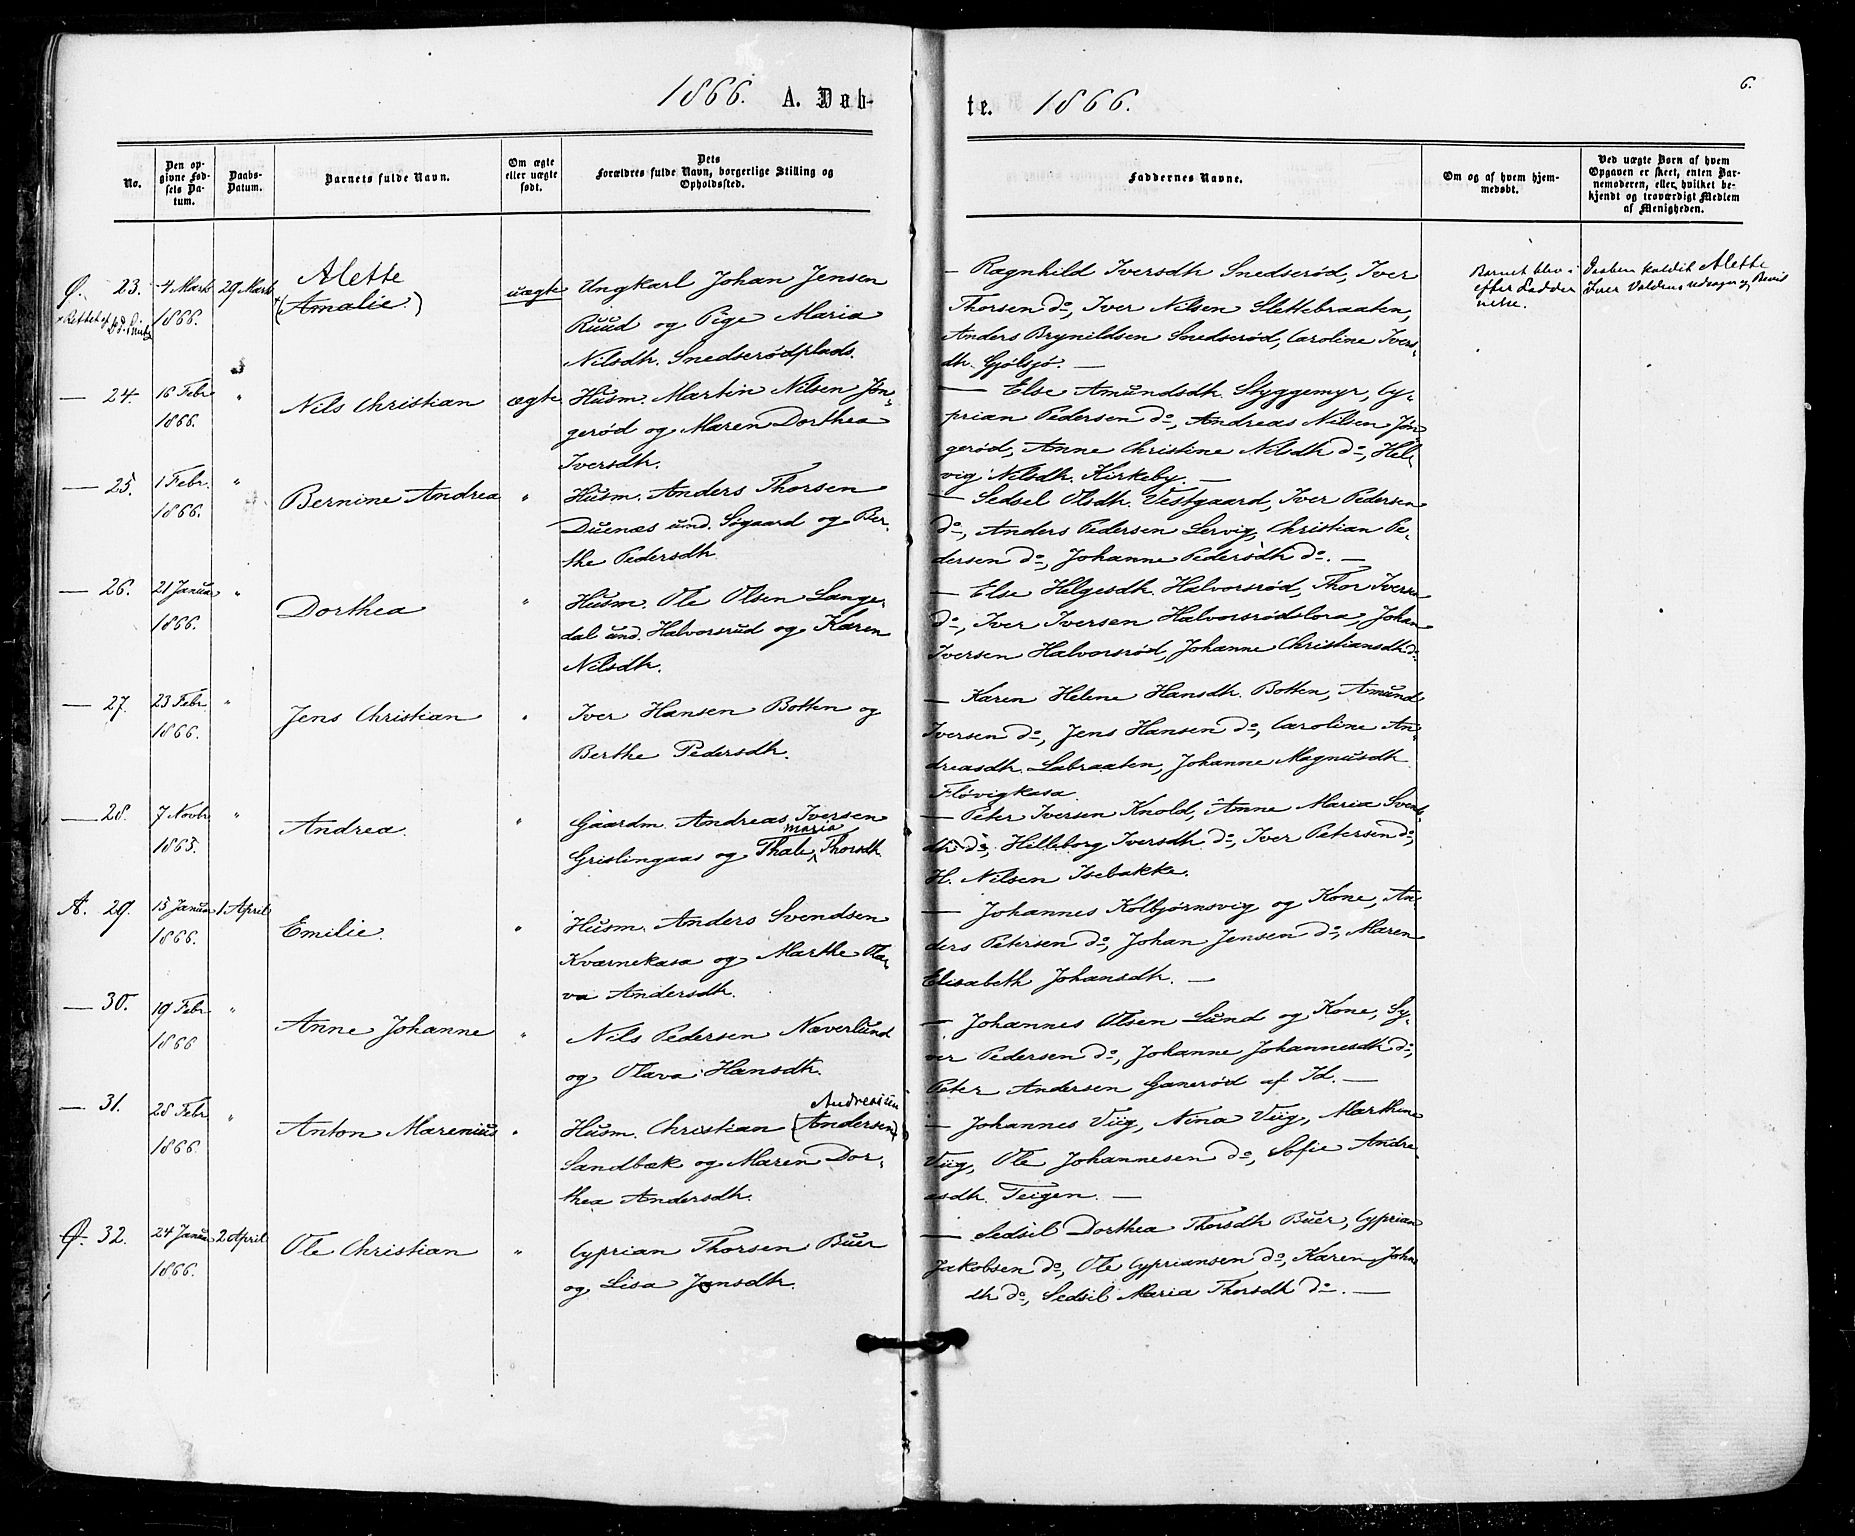 1866. A. Døb-
te. 1866.
6.
No.
Den op-
givne Fød-
sels Da-
tum.
Daabs-
Datum.
Barnets fulde Navn.
Om ægte
eller uægte
født.
Dets
Forældres fulde Navn, borgerlige Stilling og
Opholdssted.
Faddernes Navne.
Om og af hvem hjem-
medøbt.
Ved uægte Børn af hvem
Opgaven er skeet, enten Bar-
nemoderen, eller hvilket be-
kjendt og troværdigt Medlem
af Menigheden.
Ø. 23. 4 Marts 1866. 29 Marts
× Rettet af
Alette
(Amalie)
uægte
Ungkarl Johan Jensen
Ruud og Pige Maria
Nilsdh. Snedserødplads.
— Ragnhild Iversdh Snedserød, Iver
Thorsen do, Iver Nilsen Slettebraaten,
Anders Brynildsen Snedserød, Caroline Ivers-
dh. Gjølsjø. —
Barnet blev i
efter Fadder
nesse.
Daaben kaldit Alette
Iver Voldens udsagn og Bevis
— 24. 16 Febr 1866. "
Nils Christian
ægte
Husm. Martin Nilsen Jon-
gerød og Maren Dorthea
Iversdh.
— Else Amundsdh. Styggemyr, Cy-
prian Pedersen do, Andreas Nilsen Jon-
gerød, Anne Christine Nilsdh do, Hel-
vig Nilsdh. Kirkeby. —
— 25. 1 Febr. 1866. "
Bernine Andrea
"
Husm. Anders Thorsen
Duenæs und. Søgaard og Ber-
the Pedersdh
— Sedsel Olsdh. Vestgaard, Iver Pedersen
do, Anders Pedersen Lervig, Christian Pe-
dersen do, Johanne Pedersdh do. —
— 26. 21 Januar 1866. "
Dorthea
"
Husm. Ole Olsen Lange-
dal und. Halvorsrud og Karen
Nilsdh.
— Else Helgesdh. Halvorsrød, Thor Iversen
do, Iver Iversen Halvorsrødslora, Johan
Iversen Halvorsrød, Johanne Christiansdh do
— 27. 23 Febr 1866. "
Jens Christian
"
Iver Hansen Botten og
Berthe Pedersdh.
— Karen Helene Hansdh. Botten, Amund
Iversen do, Jens Hansen do, Caroline An-
dreasdh. Labraaten, Johanne Magnusdh
Fløvigkasa
— 28. 7 Novbr 1865. "
Andrea.
"
Gaardm. Andreas Iversen
maria
Grislingaas og Thale Thorsdh
— Peter Iversen Knold, Anne Maria Svends-
dh do, Hilleborg Iversdh do, Iver Petersen do,
H. Nilsen Isebakke.
A. 29. 15 Januar 1866. 1 April
Emilie.
"
Husm. Anders Svendsen
Kværnekasa og Marthe Ola-
va Andersdh.
— Johannes Kolbjørnsvig og Kone, An-
ders Petersen do, Johan Jensen do, Maren
Elisabeth Johansdh. —
— 30. 19 Febr 1866 "
Anne Johanne
"
Nils Pedersen Næverlund
og Olava Hansdh.
— Johannes Olsen Lund og Kone, Sy-
ver Pedersen do, Johanne Johannesdh do,
Peter Andersen Ganerød af Id. —
— 31. 28 Febr 1866. "
Anton Marenius
"
Andresium
Husm. Christian (Andersen)
Sandbæk og Maren Dor-
thea Andersdh.
— Johannes Viig, Nina Viig, Marthine
Viig, Ole Johannesen do, Sofie Andre-
asdh. Teigen. —
Ø. 32. 24 Januar 1866. 2 April
Ole Christian
"
Cyprian Thorsen Buer
og Lisa Jonsdh.
— Sedsil Dorthea Thorsdh Buer, Cyprian
Jakobsen do, Ole Cypriansen do, Karen Johns
dh do, Sedsil Maria Thorsdh do. —